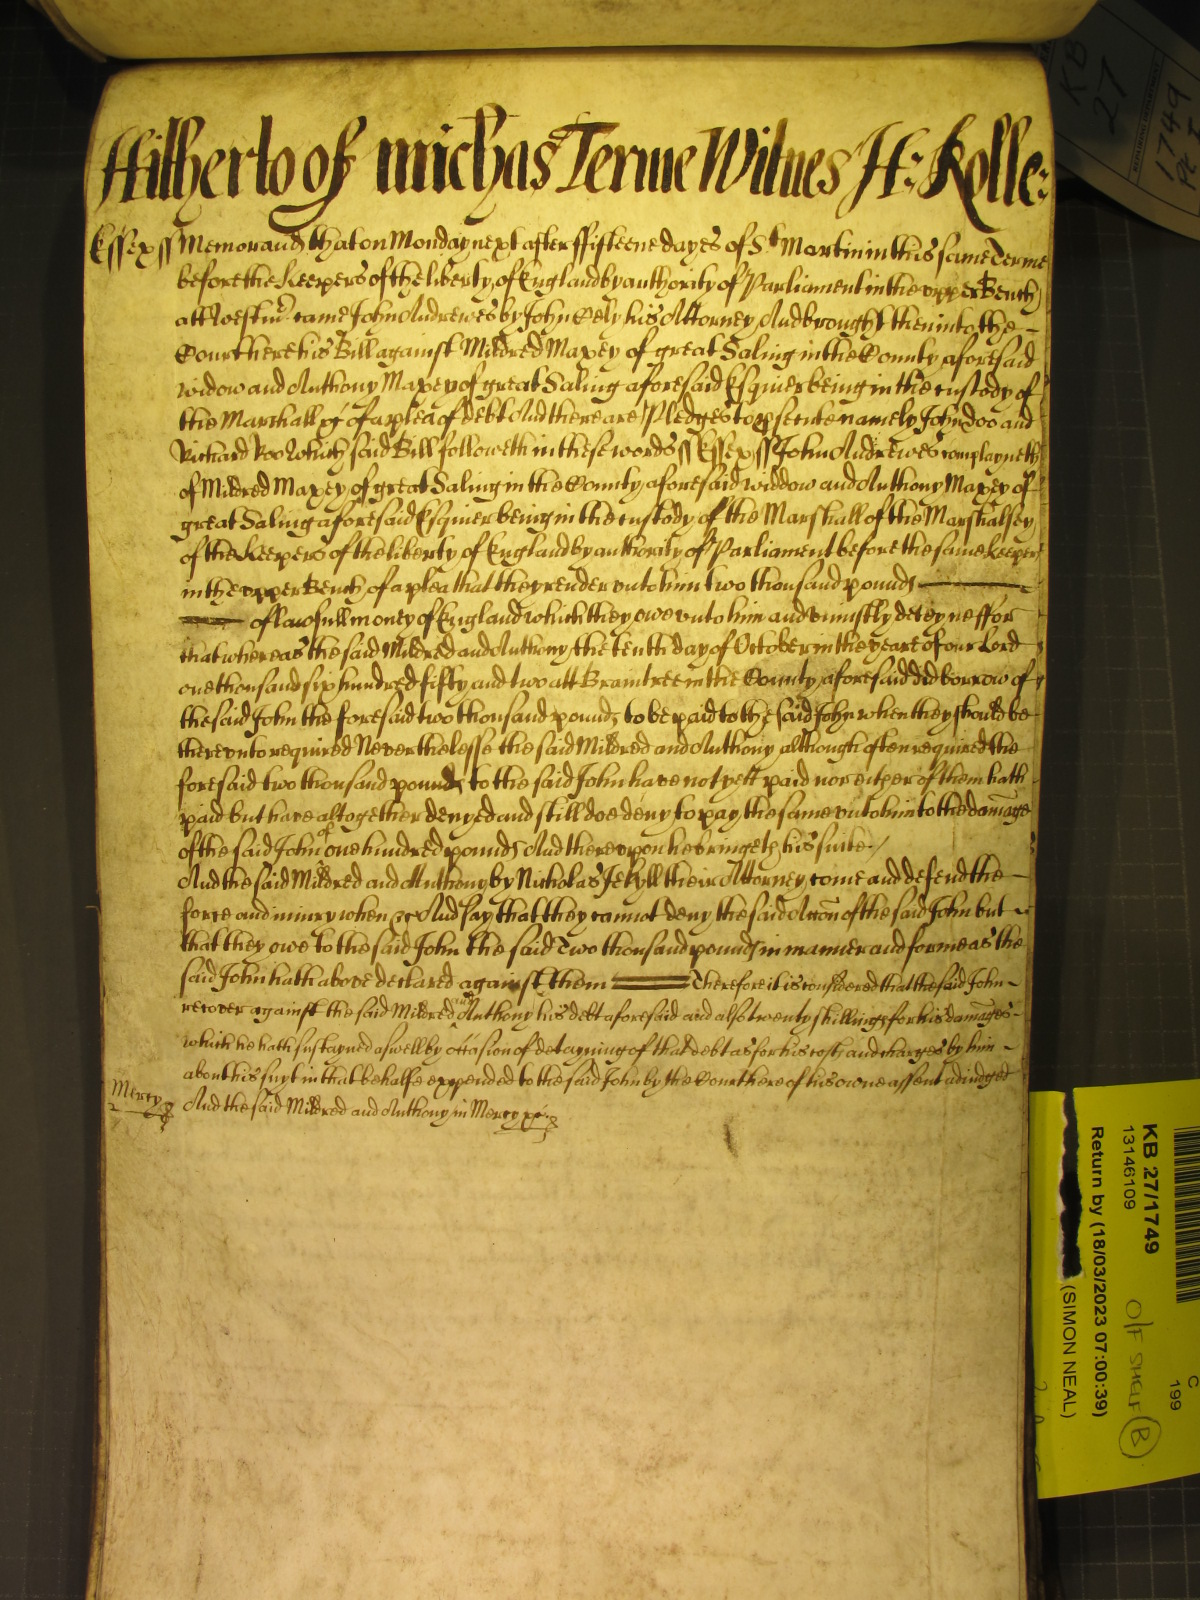 Hitherto of Michas Terme Witnes H: Rolle:
Essex ss Memorand that on Monday next after ffifteene dayes of St Martin in this same Terme
before the Keepers of the liberty of England by authority of Parliament in the vpper Bench
att Westmr came John Andrewes by John Eely his Attorney And brought then into the
Court here his Bill against Mildred Maxey of great Saling in the County aforesaid
widow and Anthony Maxey of great Saling aforesaid Esquier being in the custody of
the Marshall &c of a plea of debt And there are Pledges to psecute namely John Doo and
Richard Roo Which said Bill followeth in these words ss Essex ss John Andrewes complayneth
of Mildred Maxey of great Saling in the County aforesaid widdow and Anthony Maxey of
great Saling aforesaid Esquier being in the custody of the Marshall of the Marshalsey
of the Keepers of the liberty of England by authority of Parliament before the same Keepers
in the vpper Bench of a plea that they render vnto him two thousand pounds
of lawfull money of England which they owe vnto him and vniustly deteyne ffor
that whereas the said Mildred and Anthony the tenth day of October in the yeare of our Lord
one thousand six hundred fifty and two att Braintree in the County aforesaid did borrow of
the said John the foresaid two thousand pounds to be paid to the said John when they should be
therevnto required Neverthelesse the said Mildred and Anthony although often required the
foresaid two thousand pounds to the said John have not yett paid nor either of them hath
paid but have altogether denyed and still doe deny to pay the same vnto him to the damage
of the said John of one hundred pounds And therevpon he bringeth his suite /
And the said Mildred and Anthony by Nicholas Jekyll their Attorney come and defend the
force and iniury when &c And say that they cannot deny the said Accon of the said John but
that they owe to the said John the said Two thousand pounds in manner and forme as the
said John hath above declared against them Therefore it is considered that the said John
recover against the said Mildred and Anthony his debt aforesaid and also twenty shillings for his damages
which he hath sustayned aswell by occasion of detayning of that debt as for his costs and charges by him
about his suyt in that behalfe expended to the said John by the Court here of his owne assent adiudged
Mercy And the said Mildred and Anthony in Mercy &c
KB
27
1749
KB 27/1749
13146109
Return by (18/03/2023 07:00:39)
(SIMON NEAL)
O/F SHELF B
C
199